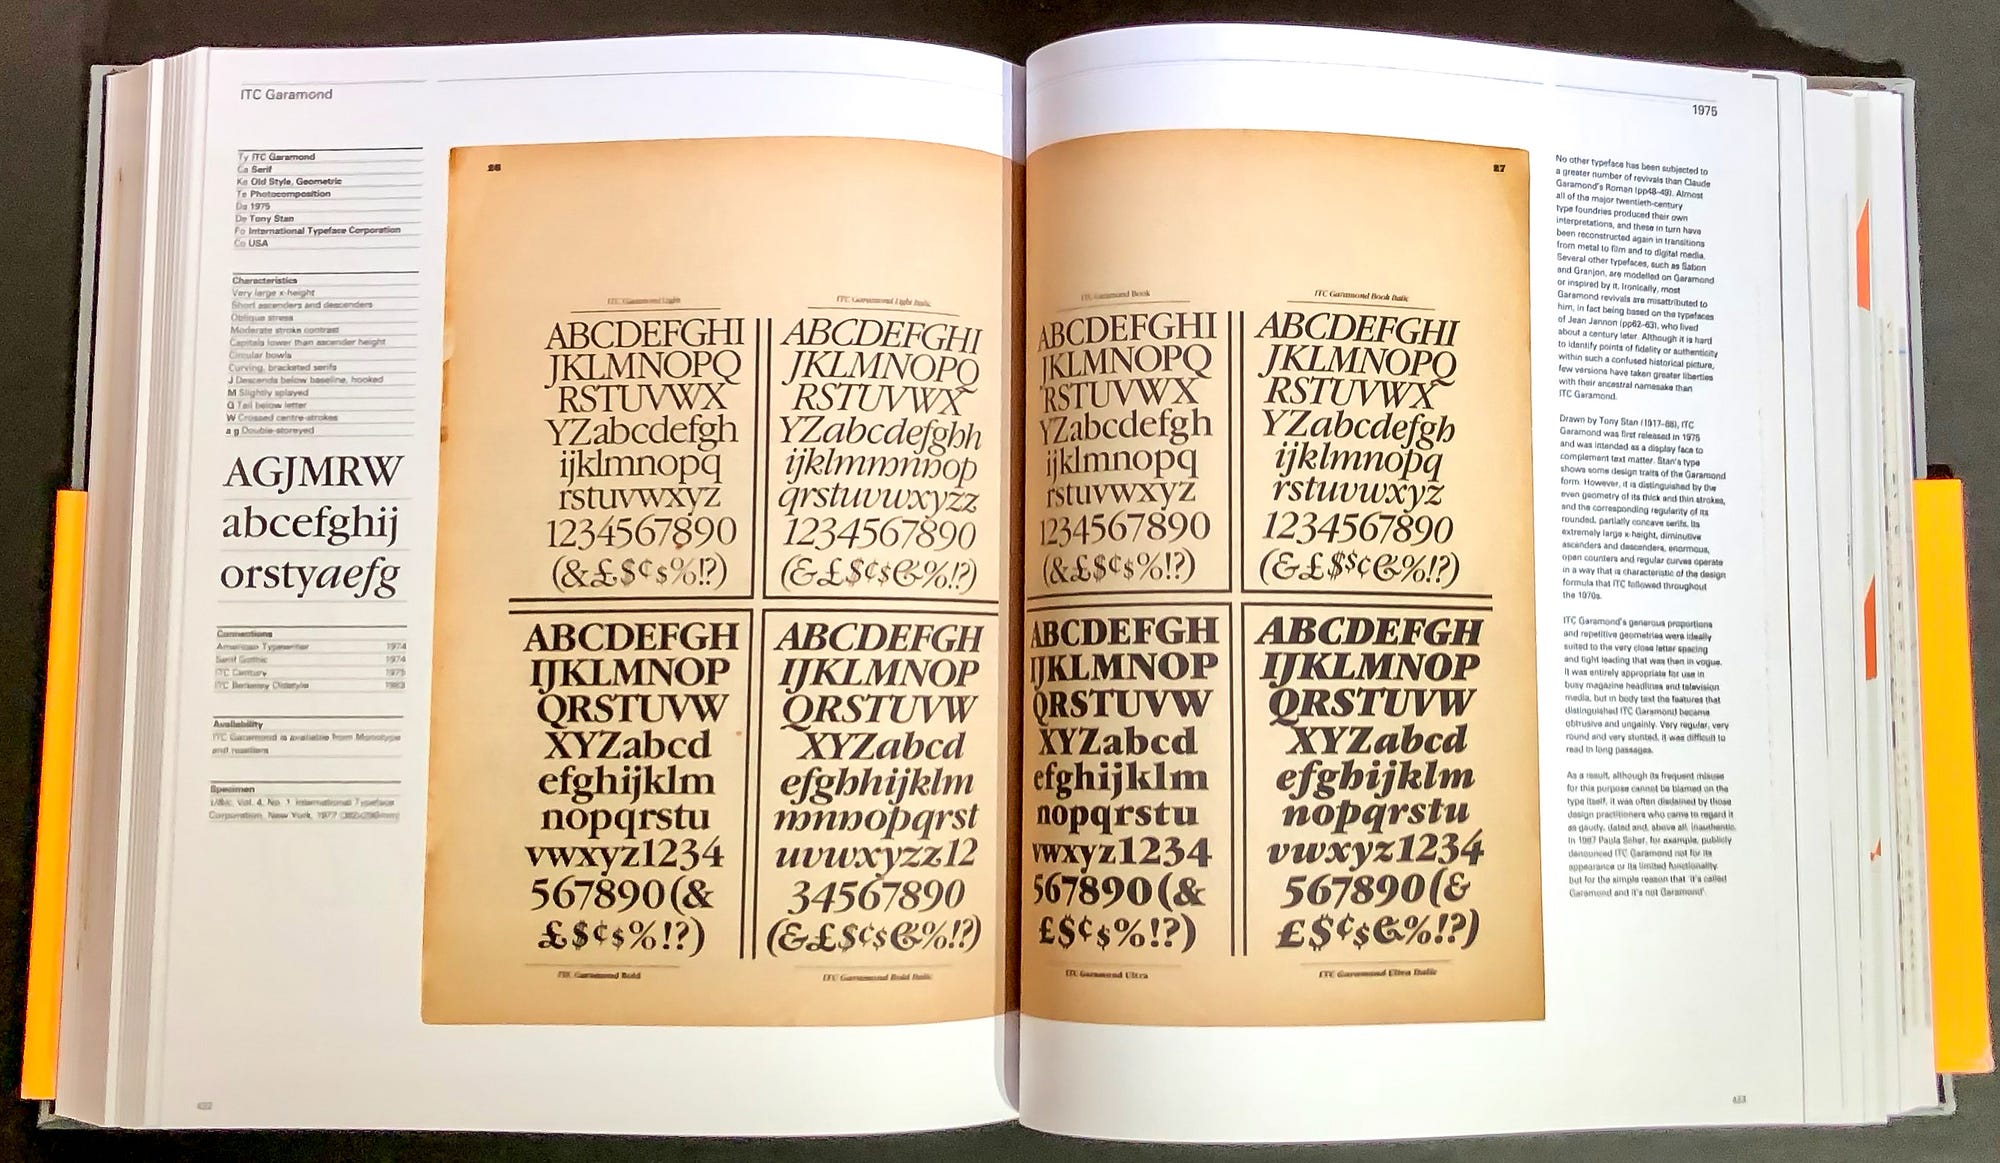 ITC Garamond
Ty ITC Garamond
Ca Serif
Ke Old Style, Geometric
Te Photocomposition
Da 1975
De Tony Stan
Fo International Typeface Corporation
Co USA
Characteristics
Very large x-height
Short ascenders and descenders
Oblique stress
Moderate stroke contrast
Capitals lower than ascender height
Circular bowls
Curving, bracketed serifs
J Descends below baseline, hooked
M Slightly splayed
Q Tail below letter
W Crossed centre-strokes
a g Double-storeyed
AGJMRW
abcefghij
orstyaefg
Connections
American Typewriter 1974
Serif Gothic 1974
ITC Century 1975
ITC Berkeley Oldstyle 1983
Availability
ITC Garamond is available from Monotype
and resellers
Specimen
U&lc, Vol. 4, No. 1. International Typeface
Corporation, New York, 1977
432
26
ITC Garamond Light
ABCDEFGHI
JKLMNOPQ
RSTUVWX
YZabcdefgh
ijklmnopq
rstuvwxyz
1234567890
(&£$¢s%!?)
ITC Garamond Light Italic
ABCDEFGHI
JKLMNOPQ
RSTUVWX
YZabcdefghh
ijklmmnnop
qrstuvwxyzz
1234567890
(&£$¢s&%!?)
ABCDEFGH
IJKLMNOP
QRSTUVW
XYZabcd
efghijklm
nopqrstu
vwxyz1234
567890(&
£$¢s%!?)
ITC Garamond Bold
ABCDEFGH
IJKLMNOP
QRSTUVW
XYZabcd
efghhijklm
mnnopqrst
uvwxyzz12
34567890
(&£$¢s&%!?)
ITC Garamond Bold Italic
27
ITC Garamond Book
ABCDEFGHI
JKLMNOPQ
RSTUVWX
YZabcdefgh
ijklmnopq
rstuvwxyz
1234567890
(&£$¢s%!?)
ITC Garamond Book Italic
ABCDEFGHI
JKLMNOPQ
RSTUVWX
YZabcdefgh
ijklmnopq
rstuvwxyz
1234567890
(&£$s¢&%!?)
ABCDEFGH
IJKLMNOP
QRSTUVW
XYZabcd
efghijklm
nopqrstu
vwxyz1234
567890(&
£$¢s%!?)
ITC Garamond Ultra
ABCDEFGH
IJKLMNOP
QRSTUVW
XYZabcd
efghijklm
nopqrstu
vwxyz1234
567890(&
£$¢s&%!?)
ITC Garamond Ultra Italic
1975
No other typeface has been subjected to
a greater number of revivals than Claude
Garamond's Roman (pp48–49). Almost
all of the major twentieth-century
type foundries produced their own
interpretations, and these in turn have
been reconstructed again in transitions
from metal to film and to digital media.
Several other typefaces, such as Sabon
and Granjon, are modelled on Garamond
or inspired by it. Ironically, most
Garamond revivals are misattributed to
him, in fact being based on the typefaces
of Jean Jannon (pp62–63), who lived
about a century later. Although it is hard
to identify points of fidelity or authenticity
within such a confused historical picture,
few versions have taken greater liberties
with their ancestral namesake than
ITC Garamond.
Drawn by Tony Stan (1917–88), ITC
Garamond was first released in 1975
and was intended as a display face to
complement text matter. Stan's type
shows some design traits of the Garamond
form. However, it is distinguished by the
even geometry of its thick and thin strokes,
and the corresponding regularity of its
rounded, partially concave serifs. Its
extremely large x-height, diminutive
ascenders and descenders, enormous,
open counters and regular curves operate
in a way that is characteristic of the design
formula that ITC followed throughout
the 1970s.
ITC Garamond's generous proportions
and repetitive geometries were ideally
suited to the very close letter spacing
and tight leading that was then in vogue.
It was entirely appropriate for use in
busy magazine headlines and television
media, but in body text the features that
distinguished ITC Garamond became
obtrusive and ungainly. Very regular, very
round and very stunted, it was difficult to
read in long passages.
As a result, although its frequent misuse
for this purpose cannot be blamed on the
type itself, it was often disdained by those
design practitioners who came to regard it
as gaudy, dated and, above all, inauthentic.
In 1987 Paula Scher, for example, publicly
denounced ITC Garamond not for its
appearance or its limited functionality,
but for the simple reason that 'it's called
Garamond and it's not Garamond'.
433